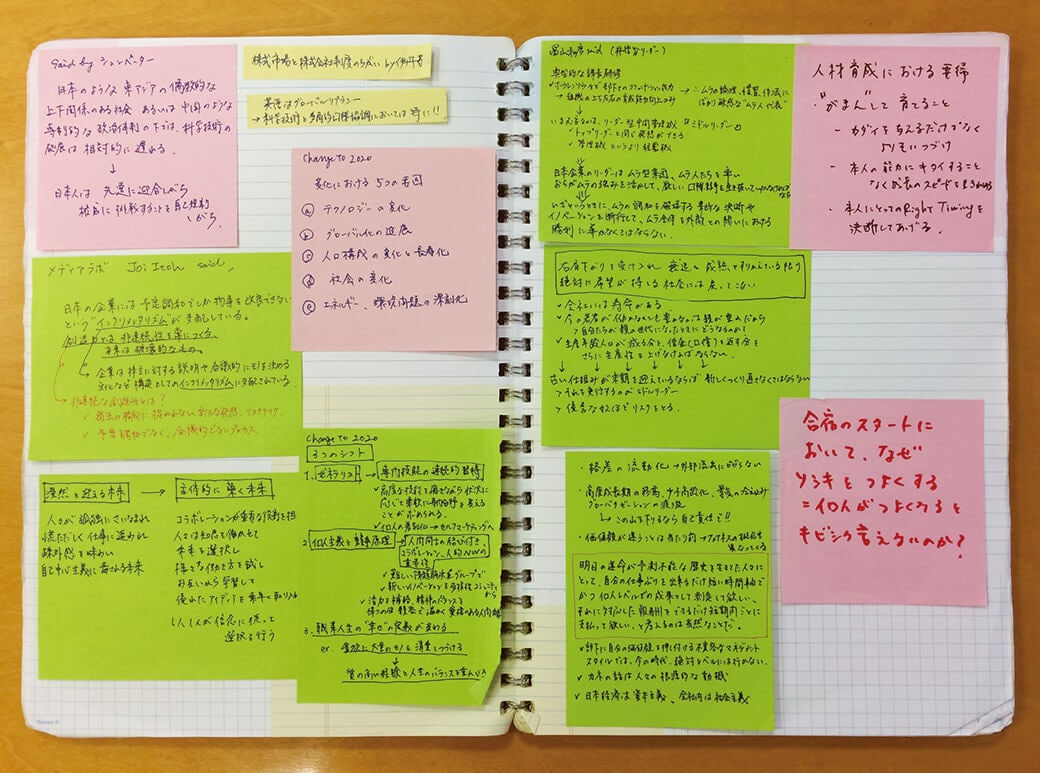 Said by シュンペーター
日本のような東アジアの儒教的な
上下関係のある社会 あるいは中国のような
専制的な政治体制の下では、科学技術の
発展は相対的に遅れる。
↓
日本人は 先達に迎合しがち
権威に挑戦することを自己規制
しがち
株式市場と株式会社制度のちがい by 伊丹
英語はグローバルリテラシー
→科学技術と多角的国際協調においては特に!!
Change to 2020
変化における 5つの要因
ⓐ テクノロジーの変化
ⓑ グローバル化の進展
ⓒ 人口構成の変化と長寿化
ⓓ 社会の変化
ⓔ エネルギー、環境問題の深刻化
メディアラボ Joi Itoh said,
日本の企業には予定調和でしか物事を改良できない
という"インクリメンタリズム"が支配している。
創造力とは 非連続性を常につくる。
未来は破壊的なもの。
企業は株主に対する説明や合議的にモノを決める
文化など構造としてのインクリメンタリズムに支配されている。
非連続な創造性とは?
✓ 過去の権威に捉われない新たな発想、リスクテイク、
✓ 予定調和でなく、合議的でないプロセス
漠然と迎える未来 → 主体的に築く未来
人々が孤独にさいなまれ
慌ただしく仕事に追われ
疎外感を味わい
自己中心主義に毒される未来
コラボレーションが重要な役割を担い
人々は知恵を働かせて
未来を選択し
様々な働き方を試し
お互いから学習して
優れたアイディアを素早く取り入れ
1人1人が信念に従って
選択を行う
Change to 2020
3つのシフト
1. ゼネラリスト → 専門技能の連続的習得
✓高度な技能を磨きながら状況に
応じて柔軟に専門分野を変える
ことが求められる。
✓個人の差別化→セルフマーケティングへ
2. 個人主義と競争原理 → 人間同士の結び付き、
コラボレーション、人的NWの
重要性
✓難しい課題解決をグループで
✓新しいイノベーションを多様性コミュニティから
✓活力を補給、精神のバランスを
保つのは 親密で温かく愛情のある人間関係
3. 職業人生の"幸せ"の定義が変わる
ex. 貪欲に大量のモノを消費しつづける
↓
質の高い経験と人生のバランスを重んじる
冨山和彦 said (非情なリーダー)
典型的な課長研修
・ホウレンソウなどで部下とのコミュニケーション能力
→組織の上下左右の意思疎通能力向上のみ
→∴ムラの論理、慣習、作法に
ばかり敏感な"ムラ人代表"
いま必要なのは、リーダー型中間管理職「ミドルリーダー」
✓トップリーダーと同じ発想ができる
✓管理職というより経営職
日本企業のリーダーはムラ型集団、ムラ人たちを率い
おちがムラの強みを活かして、厳しい国際競争を生き抜いていかなければならない
いざというときに、ムラの調和を破壊する果断な決断や
イノベーションを断行して、ムラ全体を外敵との闘いにおける
勝利に導かなくてはならない。
人材育成における要諦
"がまん"して育てること
- カダイを与えるだけでなく
よりそいつづけ
- 本人の能力にキタイすること
なく成長のスピードをまちつづける
- 本人にとってのRight Timingを
決断してあげる。
右肩下がりを受け入れ 衰退と成熟を取りちがえている限り
絶対に希望が持てる社会には戻ってこない
✓会社には寿命がある
✓今の若者が働かなくても食えるのは親が豊かだから
>自分たちが親の世代になったときにどうなるのか?
✓生産年齢人口が減る分と、借金(国債)を返す分を
さらに生産性を上げなければならない。
↓ ↓ ↓ ↓ ↓ ↓
古い仕組みが末期を迎えているならば 新しくつくり直さなくてはならない
>それを実行するのがミドルリーダー
>優秀な奴ほどリスクをとる。
・格差の流動化→外部流出に限らない
・高度成長期の終焉、少子高齢化、景気の冷え込み
グローバリゼーションの波及
↳この山を下りるなら自己責任で!!
・価値観が違うことは当たり前→ビジネスの根底も
異なってくる
明日の運命が予測不能な歴史を生きた人々に
とって、自分の仕事ぶりを出来るだけ短い時間軸で
かつ個人レベルでの成果として判定して欲しい、
それに対応した報酬をできるだけ短期間ごとに
支払って欲しい、と考えるのは当然なことだ。
✓部下に自分の価値観を押し付ける不寛容なマネジメント
スタイルでは、今の時代、絶対にレベルには行かない。
✓カネの話は人々の根源的な動機
✓日本経済は資本主義、会社内は社会主義
合宿のスタートに
おいて、なぜ
ソシキをつよくする
=個人がつよくなると
キビシク言えないのか?